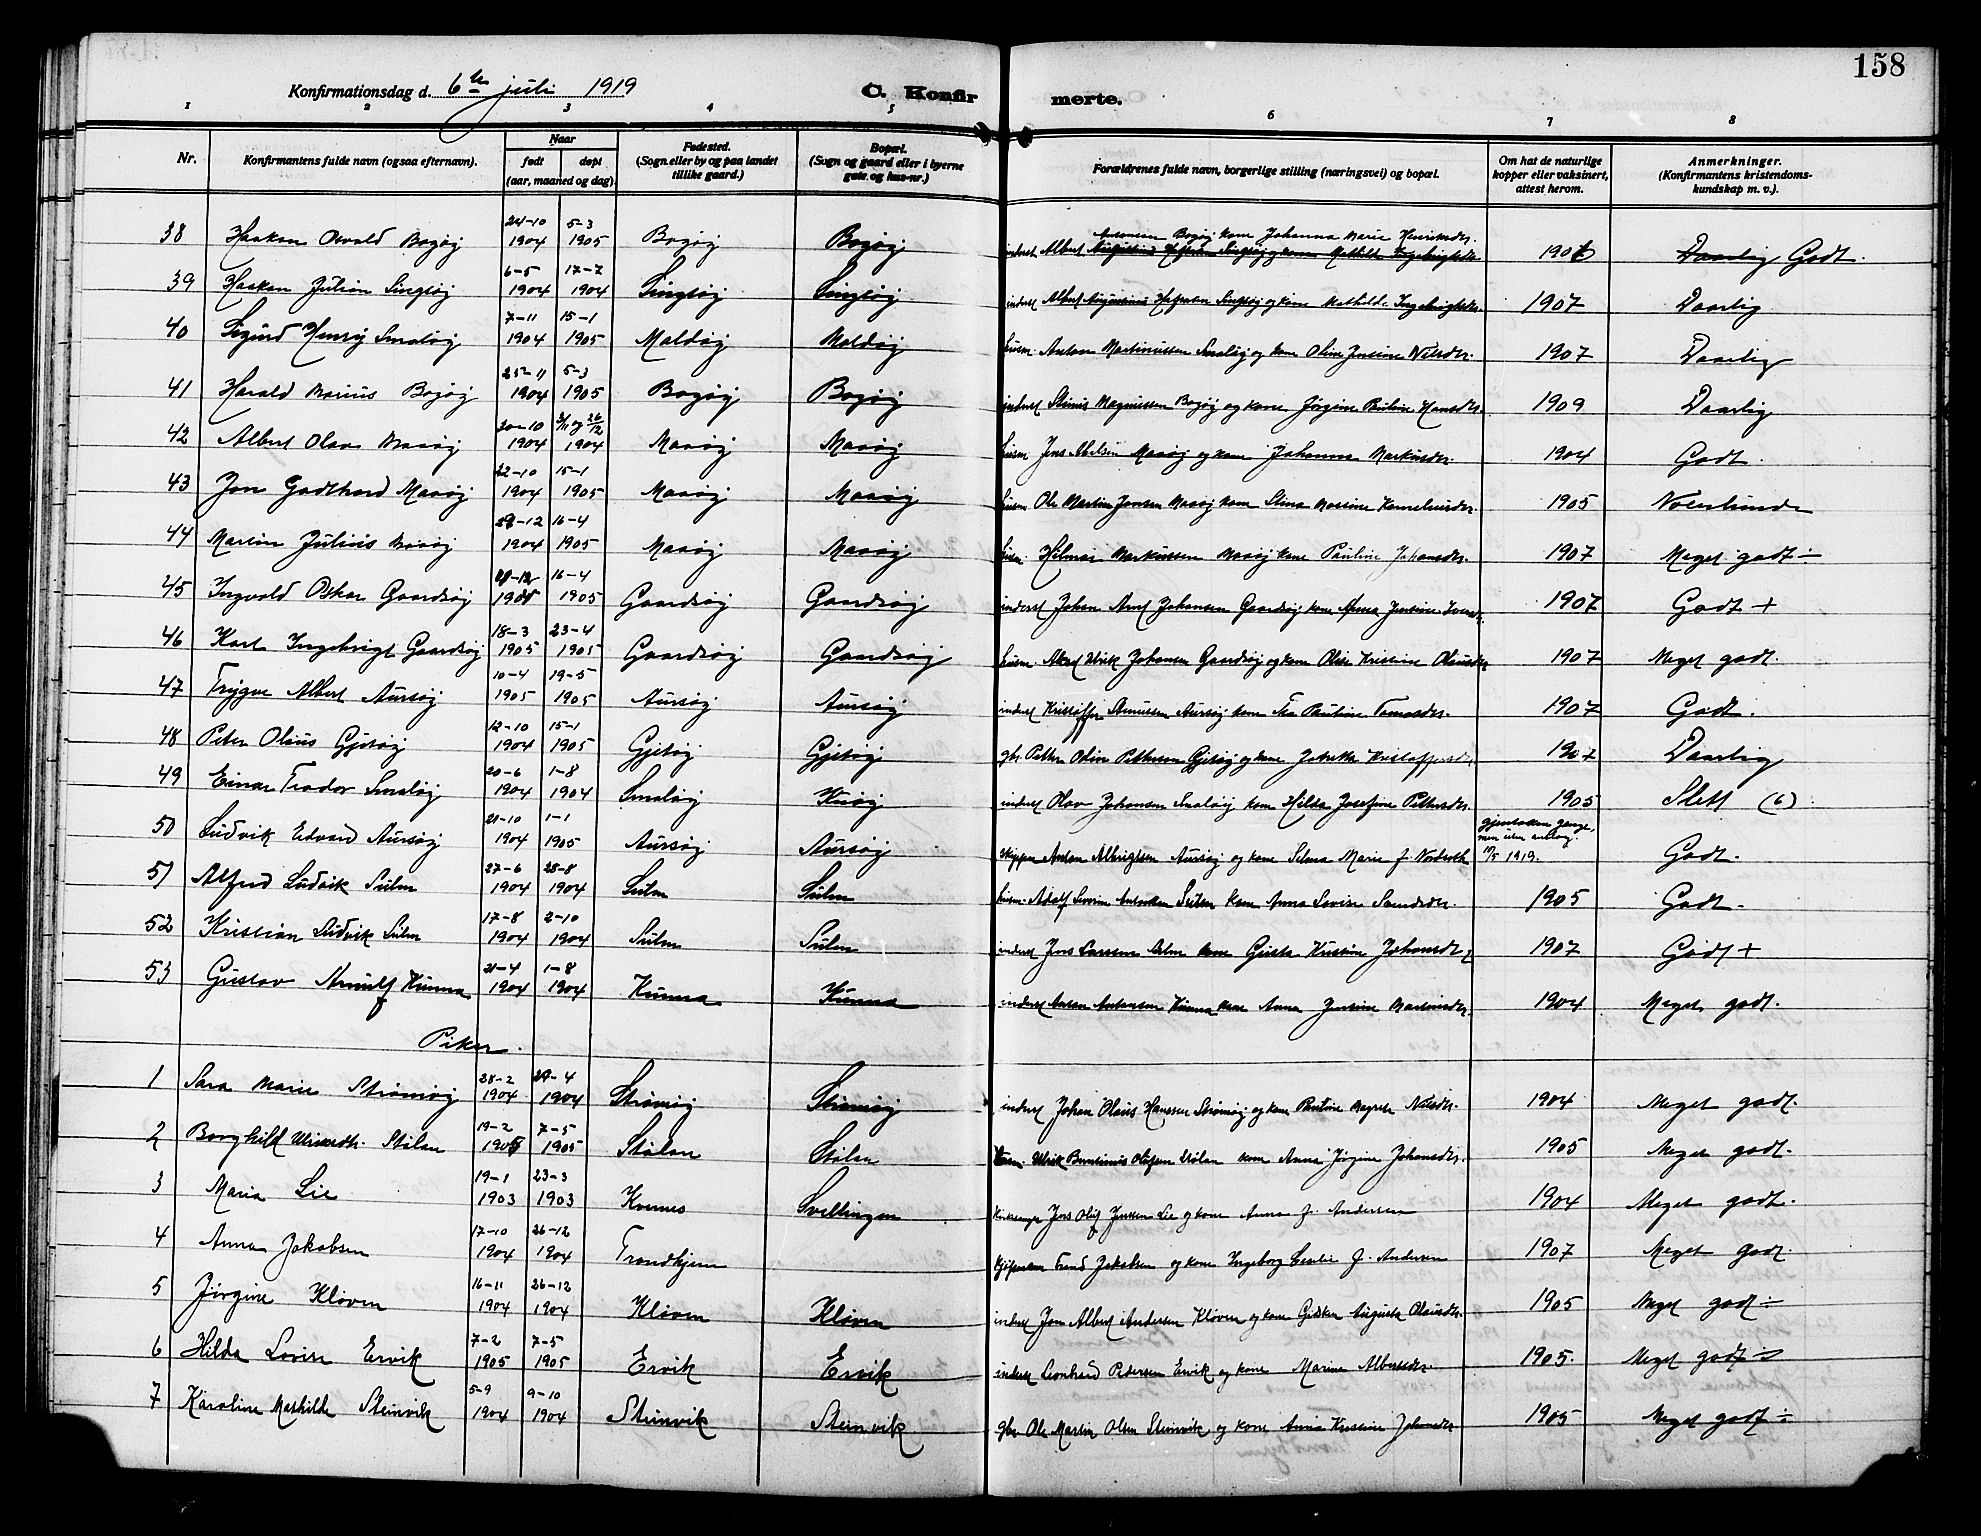 158
Konfirmationsdag d. 6te juli 1919 C. Konfir merte.
1 2 3 4 5 6 7 8
Nr. Konfirmantens fulde navn (ogsaa efternavn). Naar født døpt (aar, maaned og dag) Fødested. (Sogn eller by og paa landet tillike gaard.) Bopæl. (Sogn og gaard eller i byerne gate og hus-nr.) Forældrenes fulde navn, borgerlige stilling (næringsvei) og bopæl. Om hat de naturlige kopper eller vaksinert, attest herom. Anmerkninger. (Konfirmantens kristendomskundskap m. v.).
38 Haakon Osvald Bogøy 24-10 1904 5-3 1905 Bogøy Bogøy inderst Albert Antonsen Bogøy kone Johanna Marie Henriksdr. Daarlig Godt.
39 Haakon Julian Singsøy 6-5 1904 17-7 1904 Singsøy Singsøy inderst Albert Augustinus Singsøy og kone Mathilde Ingebrigtsdr. 1907 Daarlig
40 Sigurd Henry Smaløy 7-11 1904 15-1 1905 Maldøy Maldøy husm Anton Martinussen Smaløy og kone Oline Jensine Nilsdr. 1907 Daarlig
41 Harald Marius Bogøy 25-11 1904 5-3 1905 Bogøy Bogøy inderst Magnussen Bogøy og kone Jørgine Pauline Hansdr. 1909 Daarlig
42 Albert Olav Maaøy 20-10 1904 1904 Maaøy Maaøy husm Jens Maaøy og kone Johanna Markusdr. 1904 Godt.
43 Jon Godthard Maaøy 22-10 1904 15-1 1905 Maaøy Maaøy husm Ole Martin Jonsen Maaøy kone 1905
44 Martin Julius Maaøy 12 1904 16-4 1905 Maaøy Maaøy husm. Hilmar Markussen Maaøy kone Pauline 1907 Meget godt ÷
45 Ingvald Oskar Gaardsøy 16-4 1905 Gaardsøy Gaardsøy inderst Johan Johansen Gaardsøy kone Anna Jensine 1907 Godt +
46 Karl Ingebrigt Gaardsøy 18-3 1905 23-4 1905 Gaardsøy Gaardsøy husm Johansen Gaardsøy og kone Kristine 1907 Meget godt.
47 Trygve Albert Aursøy 10-4 1905 19-5 1905 Aursøy Aursøy inderst Kristoffer Aursøy kone Pauline 1907 Godt.
48 Peter Olaus Gjetøy 12-10 1904 15-1 1905 Gjetøy Gjetøy gbr. Petter Odin Pettersen Gjetøy og kone Kristoffersdr. Daarlig
49 Einar Teodor Smaløy 20-6 1904 1-8 1904 Smaløy inderst Olav Johansen Smaløy kone Hilda Josefine Pettersdr. 1905 Slett (6)
50 Ludvik Edvard Aursøy 21-10 1904 1-1 1905 Aursøy Aursøy skipper Anton Albrigtsen Aursøy og kone Selma Marie f. gjentatte gange, men uten 1919. Godt.
51 Alfred Ludvik Sulen 27-6 1904 28-8 1904 Sulen Sulen husm. Adolf Severin kone Anna Lovise 1905 Godt.
52 Kristian Ludvik Sulen 17-8 1904 2-10 1904 Sulen Sulen inderst Jens Larssen Sulen kone Gusta Kristine Johansdr. 1907 Godt +
53 Gustav Arnulf Kunna 21-4 1904 1-8 1904 Kunna Kunna inderst Anton Antonsen Kunna kone Anna Jensine Martinsdr. 1904 Meget godt.
Piker.
1 Sara Marie Strømøy 28-2 1904 4 1904 Strømøy Strømøy inderst Johan Olaus Hanssen Strømøy og kone Pauline Nilsdr. 1904 Meget godt.
2 Borghild Ulriksdtr. Stølan 19-2 1905 7-5 1905 Stølan Stølan husm. Ulrik Olufsen Stølan kone Anna Jørgine Johansdr. 1905 Meget godt.
3 Maria Lie 19-1 1903 23-3 1903 Kvernes Svellingen Jens Oluf Jenssen Lie og kone Anna f. Andersen 1904 Meget godt.
4 Anna Jakobsen 17-10 1904 26-12 1904 Trondhjem kjøpman Jakobsen og kone Ingeborg f. Andersen 1907 Meget godt.
5 Jørgine Kløven 16-11 1904 26-12 1904 Kløven Kløven inderst Jon Albert Andersen Kløven og kone Augusta Olausdr. 1905 Meget godt ÷
6 Hilda Lovise Ervik 7-2 1905 7-5 1905 Ervik Ervik inderst Leonhard Pedersen Ervik og kone Marine Albertsdr. 1905. Meget godt ÷
7 Karoline Mathilde Steinvik 5-9 1904 9-10 1904 Steinvik Steinvik gbr Ole Martin Olsen Steinvik og kone Anna Kristine Johansdr. 1905 Meget godt ÷